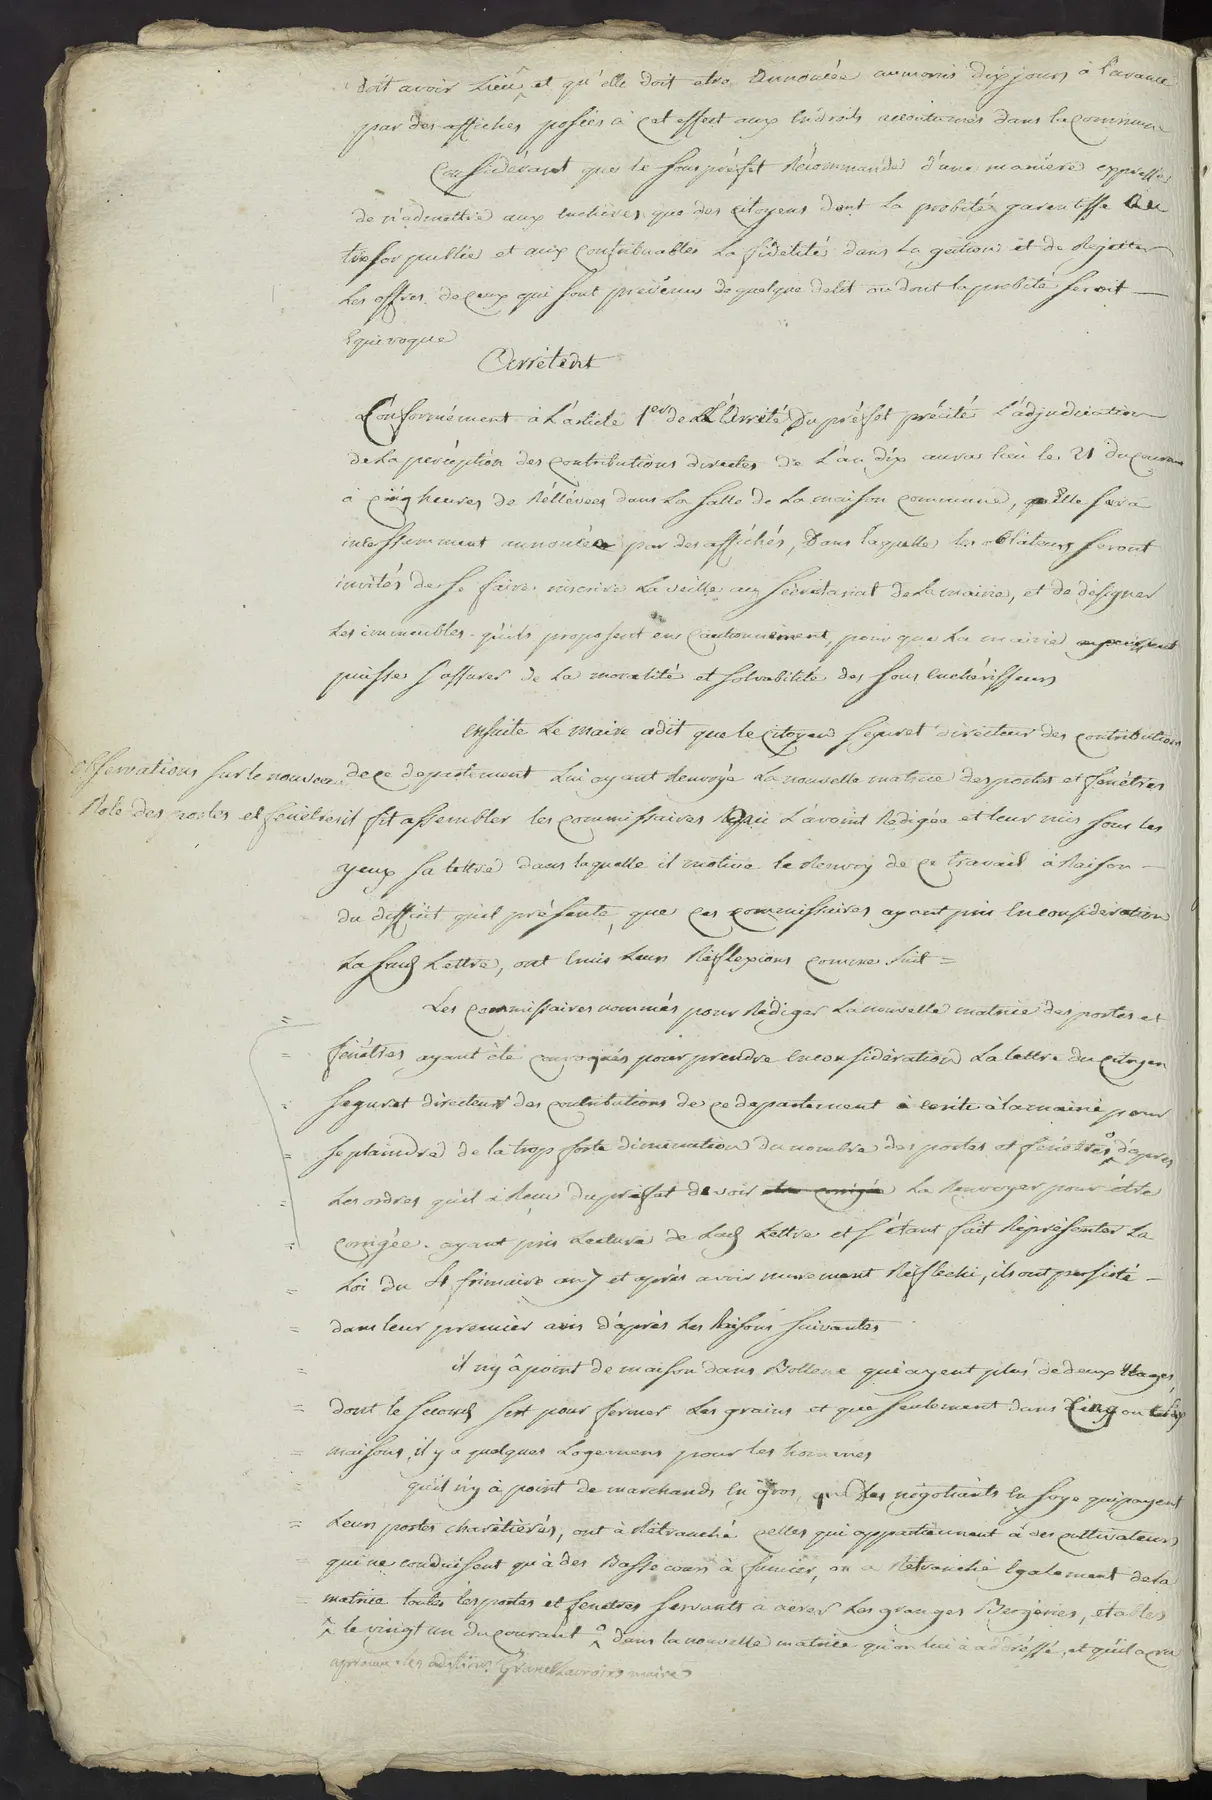 doit avoir Lieu ^ et qu'elle doit etre Annoncée aumoins dix jours à l'avance
par des affiches posées à cet effect aux Endroits accoutumés dans la Commune
Considérant que le Sous préfet Récommande d'une maniére expresse
de n'admettre aux encheres que des Citoyens dont La probité garentisse Au
tresor publié et aux Contribuables La fidelité dans La gestion et de Rejetter
Les offres de Ceux qui sont prévenus de quelque delit ou dont la probité seroit
Equivoque
Arrêtent
Conformément à L'article 1er de L'Arreté Du préfet précité L'adjudication
de La perception des Contributions directes de L'an dix aura lieu le 21 du Courant
à Cinq heures de Réllévée dans La Salle de La maison Commune, qu'Elle sera
incessamment annoncée par des affichés, Dans laquelle les oblateurs seront
invités de se faire inscrire La veille au secrétariat de La mairie, et de désigner
Les immeubles qu'ils proposent en Cautionnement, pour que La mairie
puisse s'assurer de La moralité et solvabilité des Sous enchérisseurs
ensuite Le maire a dit que le Citoyen seguret directeur des Contributions
observations sur le nouveau
Rôle des portes et fenêtres
de Ce departement Lui ayant Renvoyé La nouvelle matrice des portes et fenêtres
il fit assembler les Commissaires qui L'avoint Rédigée et leur mis sous les
yeux sa lettre dans laquelle il motive le Renvoy de Ce travail à Raison
du difficit qu'il présente, que Ces Commissaires ayant pris En considération
La susd Lettre, ont Emis Leurs Réflexions Comme suit =
Les Commissaires nommés pour Rédiger La nouvelle matrice des portes et
fenêtres ayant été Convoqués pour prendre En considération La lettre du Citoyen
seguret directeur des Contributions de Ce departement à ecrite à la mairie pour
se plaindre de la trop forte diminution du nombre des portes et fenêtres ^ d'apres
Les ordres qu'il à Reçu du préfet devoir La Renvoyer pour être
Corrigée. ayant pris Lecture de Lad Lettre et s'étant fait Réprésenter La
Loi du 4 frimaire an 7 et après avoir murement Réflechi, ils ont persisté
dans leur premier avis d'après Les Raisons suivantes
il n'y à point de maison dans Bollene qui ayent plus de deux Etages,
dont le second sert pour fermer Les grains et que seulement dans Cinq ou six
maisons, il y a quelques Logemens pour les hommes
qu'il n'y à point de marchands En gros, que Des négotiants En soye qui payent
Leurs portes charétières, ont à Rétranché Celles qui appartiennent à des Cultivateurs
qui ne Conduisent qu'à des Basse cours à fumier, on a Retranché Egalement de la
matrice toutes les portes et fenetres servants à aérer Les granges Bergeries, étables
^ le vingt un du Courant ^ dans la nouvelle matrice qu'on lui à addréssé, et qu'il a cru